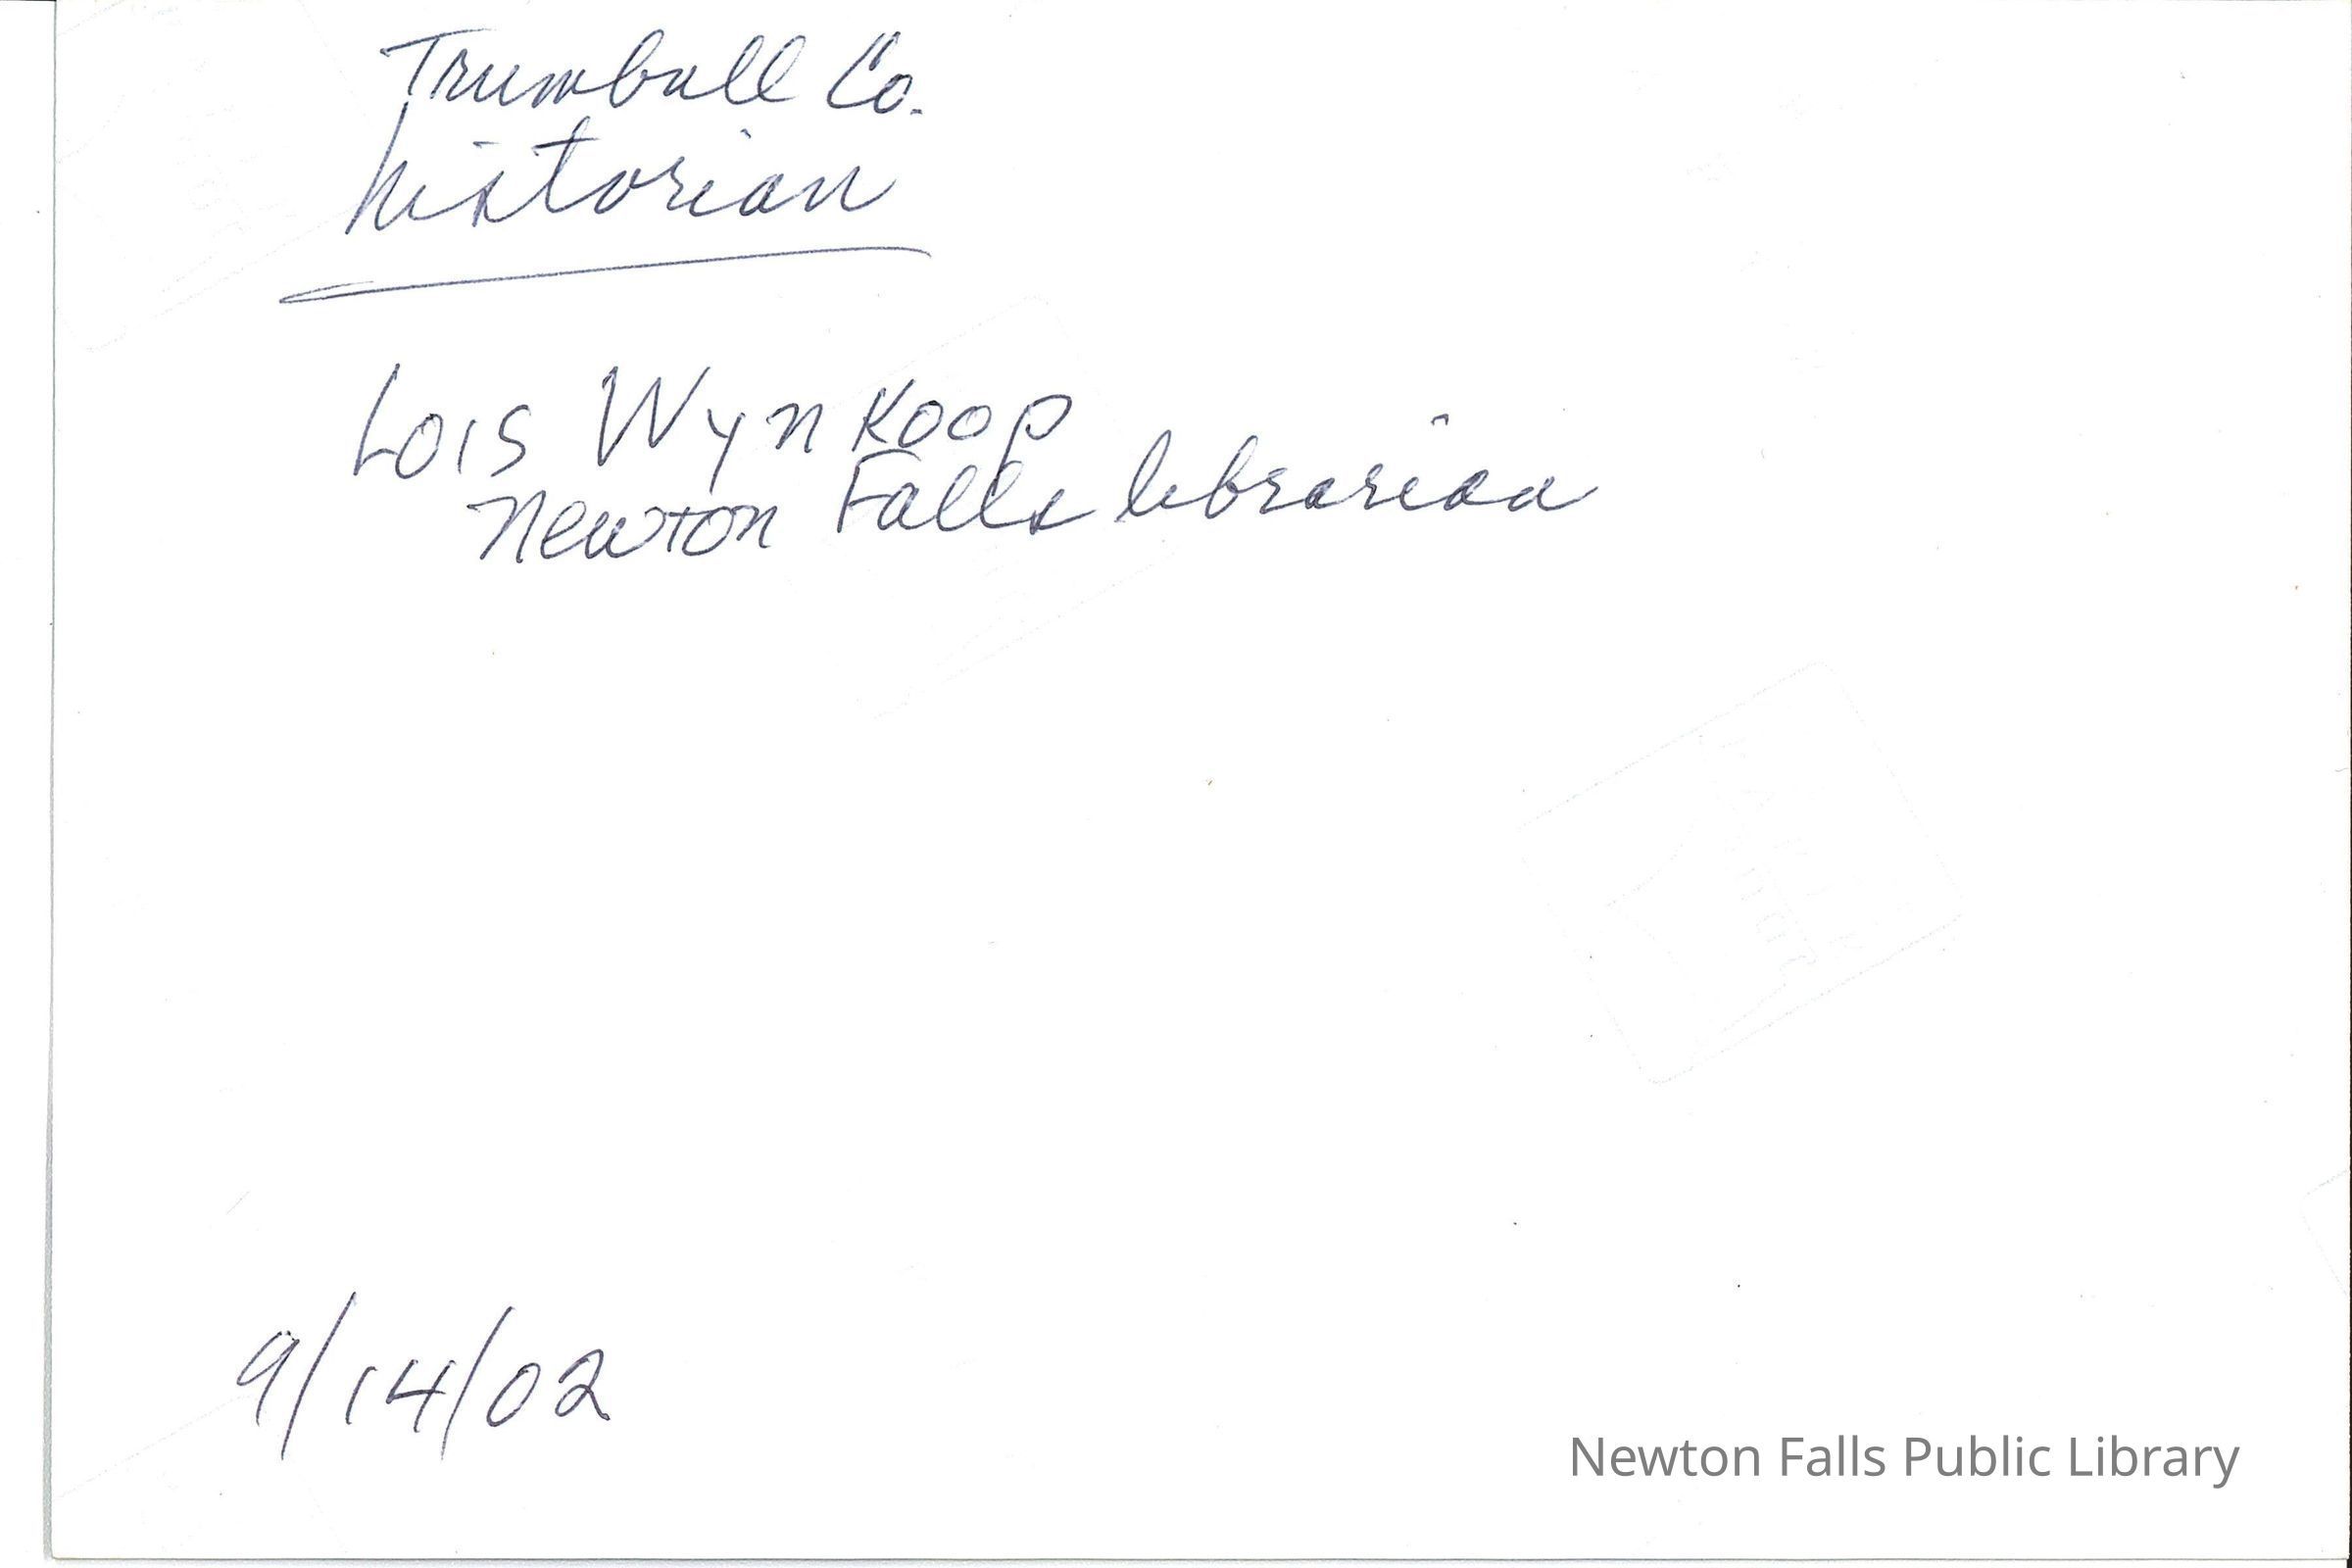 Trumbull Co.
historian
Lois Wynkoop
Newton Falls librarian
9/14/02
Newton Falls Public Library